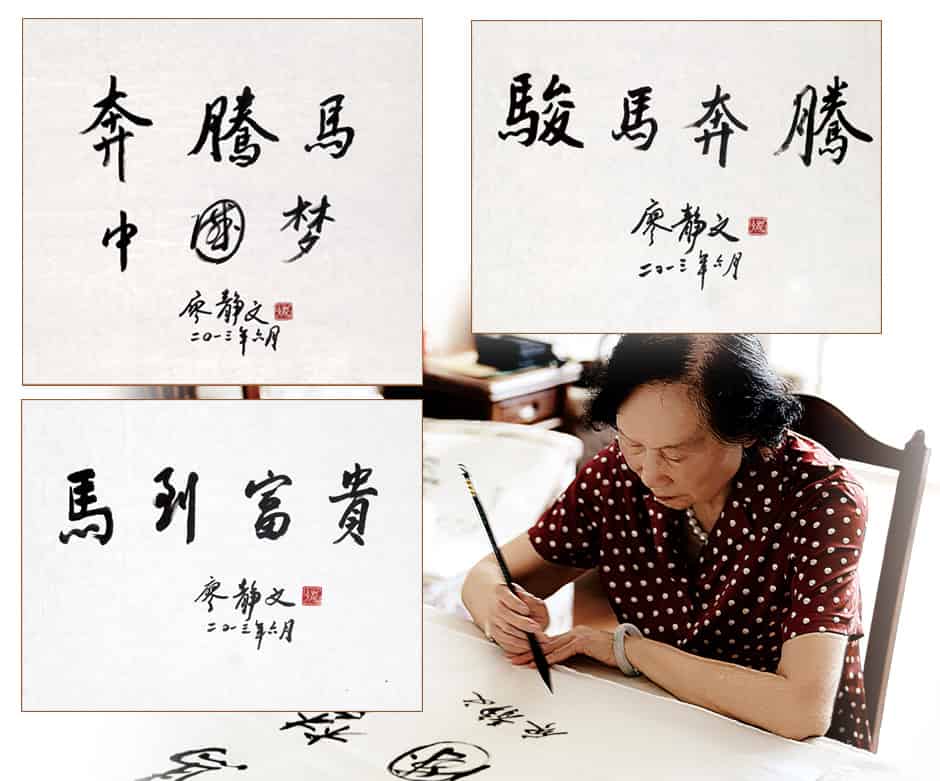 奔騰馬
中國梦
廖静文
二〇一三年六月
駿馬奔騰
廖静文
二〇一三年六月
馬到富貴
廖静文
二〇一三年六月
廖静文